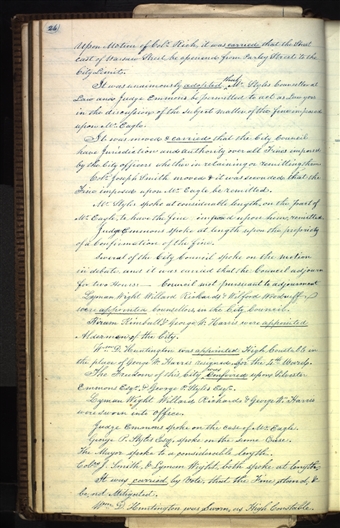 26
Upon Motion of Col. Rich, it was carried that the Street
east of Warsaw Street be opened from Parley Street to the
City Limits.
It was unanimously adopted that Mr. Styles Counsellor at
Law and Judge Emmons be permitted to act as Lawyers
in the discussion of the subject matter of the fine imposed
upon Mr. Eagle.
It was moved & carried that the City Council
have Jurisdiction and authority over all Fines imposed
by the City officers whether in retaining or remitting them.
Col. Joseph Smith moved & it was seconded that the
Fine imposed upon Mr. Eagle be remitted.
Mr. Styles spoke at considerable length, on the part of
Mr. Eagle, to have the fine imposed upon him, remitted.
Judge Emmons spoke at length upon the propriety
of a confirmation of the fine.
Several of the City Council spoke on the motion
in debate and it was carried that the Council adjourn
for two Hours. — Council met pursuant to adjournment
Lyman Wight Willard Richards & Wilford Woodruff
were appointed Counsellors in the City Council.
Hiram Kimball & George W. Harris were appointed
Aldermen of the City.
Wm. D. Huntington was appointed High Constable in
the place of Geo. W. Harris resigned for the Wards.
The Freedom of this City was Conferred upon Sylvester
Emmons Esqr. & George P. Styles Esqr.
Lyman Wight Willard Richards & George W. Harris
were sworn into office.
Judge Emmons spoke on the case of Mr. Eagle.
George P. Styles Esq. spoke on the same Case.
The Mayor spoke to a considerable length.
Cols. J. Smith, & Lyman Wight, both spoke at length.
It was carried by vote, that the Fine stand, &
be not Mitigated.
Wm. D. Huntington was Sworn, as High Constable.